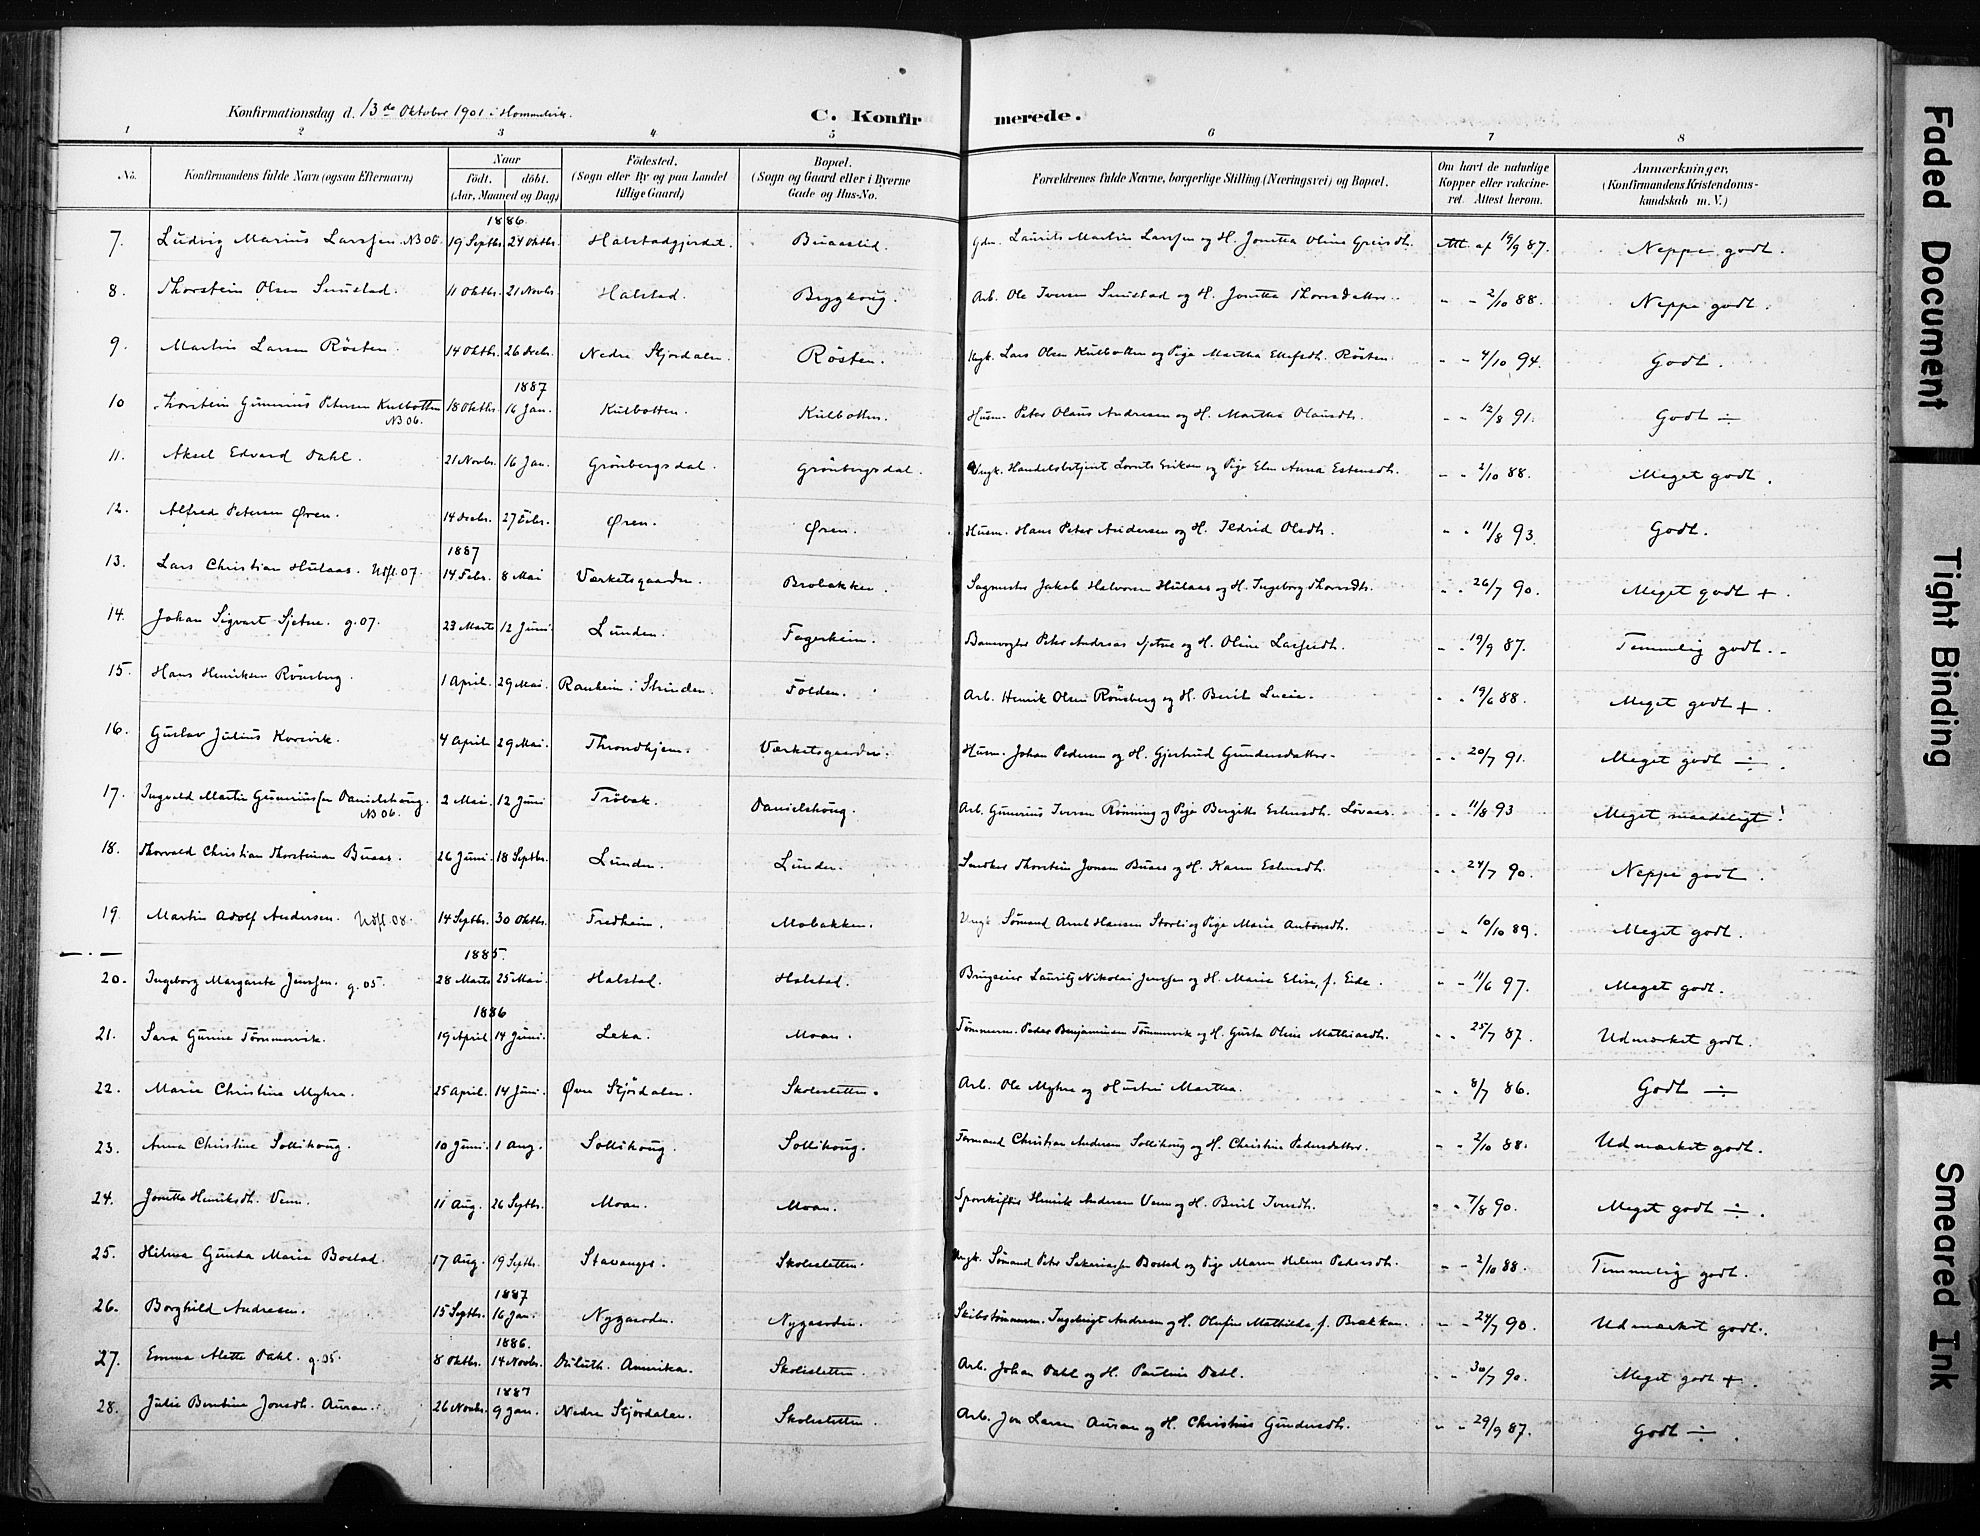 Konfirmationsdag d. 13de Oktober 1901 i Hommelvik.
C. Konfirmerede.
1 2 3 4 5 6 7 8
No. Konfirmandens fulde Navn (ogsaa Efternavn) Naar födt. döbt. (Aar, Maaned og Dag) Födested. (Sogn eller By og paa Landet tillige Gaard) Bopæl. (Sogn og Gaard eller i Byerne Gade og Hus-No. Forældrenes fulde Navne, borgerlige Stilling (Næringsvei) og Bopæl. Om havt de naturlige Kopper eller vakcineret. Attest herom. Anmærkninger. (Konfirmandens Kristendomskundskab m. V.)
1886.
7. Ludvig Marius Larssen. NB 06. 19 Septbr. 24 Oktbr. Halstadgjerdet. Buaaslid. Gdm. Laurits Martin Larssen og H. Jonetta Oline Greisdt. Att. af 19/9 87. Neppe godt.
8. Thorstein Olsen Smustad. 11 Oktbr. 21 Novbr. Halstad. Bryghoug. Arb. Ole Iversen Smustad og H. Jonetta Thorsdatter. - - 2/10 88. Neppe godt.
9. Martin Larsen Rösten. 14 Oktbr. 26 Decbr. Nedre Stjördalen. Rösten. Ungk. Lars Olsen Kulbotten og Pige Martha Ellefsdt. Rösten. - - 4/10 94. Godt.
1887
10 Thorstein Gunerius Petersen Kulbotten NB 06. 18 Oktbr. 16 Jan. Kulbotten. Kulbotten. Husm. Peter Olaus Andresen og H. Martha Olausdt. - - 12/8 91. Godt ÷
11. Aksel Edvard Dahl. 21 Novbr. 16 Jan. Grönbergsdal. Grönbergsdal. Ungk. Handelsbetjent Lorits Eriksen og Pige Elen Anna Estensdt. - - 2/10 88. Meget godt.
12. Alfred Petersen Øren. 14 Decbr. 27 Febr. Øren. Øren. Husm. Hans Peter Andersen og H. Ildrid Olsdt. - - 11/8 93. Godt.
1887
13. Lars Christian Hulaas. Udfl. 07. 14 Febr. 8 Mai Værketsgaarden. Brobakken. Sagmester Jakob Halvorsen Hulaas og H. Ingeborg Thorsdt. - - 26/7 90. Meget godt +.
14. Johan Sigvart Sjetne. g. 07. 23 Marts 12 Juni Lunden. Fagerheim. Banevogter Peter Andreas Sjetne og H. Oline Larsdt. - - 19/9 87. Temmelig godt.
15. Hans Henriksen Rönsberg. 1 April. 29 Mai. Ranheim i Strinden. Folden. Arb. Henrik Olsen Rönsberg og H. Berit Lucie. - - 19/6 88. Meget godt +.
16. Gustav Julius Korsvik. 4 April 29 Mai. Throndhjem. Værketsgaarden. Husm. Johan Pedersen og H. Gjertrud Gundersdatter. - - 20/7 91. Meget godt ÷.
17. Ingvald Martin Guneriussen Danielshoug. NB 06. 2 Mai. 12 Juni Tröbak. Danielshoug. Arb. Gunerius Iversen Rönning og Pige Bergitte Estensdt. Løvaas. - - 11/8 93 Meget maadeligt!
18. Thorvald Christian Thorsteinsen Buaas. 26 Juni. 18 Septbr. Lunden. Lunden. Snedker Thorstein Jonsen Buaas og H. Karen Estensdt. - - 24/7 90. Neppe godt.
19. Martin Adolf Andersen. Udfl. 08. 14 Septbr. 30 Oktbr. Fredheim. Mobakken. Ungk. Sömand Arnt Hansen Storli og Pige Marie Antonsdt. - - 10/10 89. Meget godt.
1885.
20. Ingeborg Margarete Jenssen. g. 05. 28 Marts 25 Mai. Halstad. Halstad. Brugseier Lauritz Nikolai Jenssen og H. Marie Elise, f. Eide. - - 11/6 97. Meget godt.
1886
21. Sara Gurine Tömmervik. 19 April 14 Juni. Leka. Moan. Tömmerm. Peder Benjaminsen Tömmervik og H. Gusta Oline Mathiasdt. - - 25/7 87. Udmærket godt.
22. Marie Christine Myhra. 25 April. 14 Juni. Øvre Stjördalen. Skolesletten. Arb. Ole Myhra og Hustru Martha. - - 8/7 86. Godt ÷
23. Anna Christine Sollihoug. 10 Juni. 1 Aug. Sollihoug. Sollihoug. Formand Christian Andersen Sollihoug og H. Christine Pedersdatter. - - 2/10 88. Udmærket godt.
24. Jonetta Henriksdt. Venn. 11 Aug. 26 Septbr. Moan. Moan. Sporskifter Henrik Andersen Venn og H. Berit Iversdt. - - 7/8 90. Meget godt ÷.
25. Hilma Gunda Marie Bostad. 17 Aug. 19 Septbr. Stavanger. Skolesletten. Ungk. Sömand Peter Sakariassen Bostad og Pige Maren Helene Pedersdt. - - 2/10 88. Temmelig godt.
1887
26. Borghild Andresen. 15 Septbr. 16 Jan. Nygaarden. Nygaarden. Skibstömmerm. Ingebrigt Andresen og H. Olefine Mathilde, f. Brækkan. - - 24/7 90. Udmærket godt.
1886.
27. Emma Alette Dahl. g. 05. 8 Oktbr. 14 Novbr. Duluth. Amerika. Skolesletten. Arb. Johan Dahl og H. Pauline Dahl. - - 30/7 90. Meget godt +.
1887
28. Julie Berntine Jonsdt. Auran. 26 Novbr. 9 Jan. Nedre Stjördalen. Skolesletten. Arb. Jon Larsen Auran og H. Christine Gundersdt. - - 29/9 87. Godt ÷.
Faded Document
Tight Binding
Smeared Ink